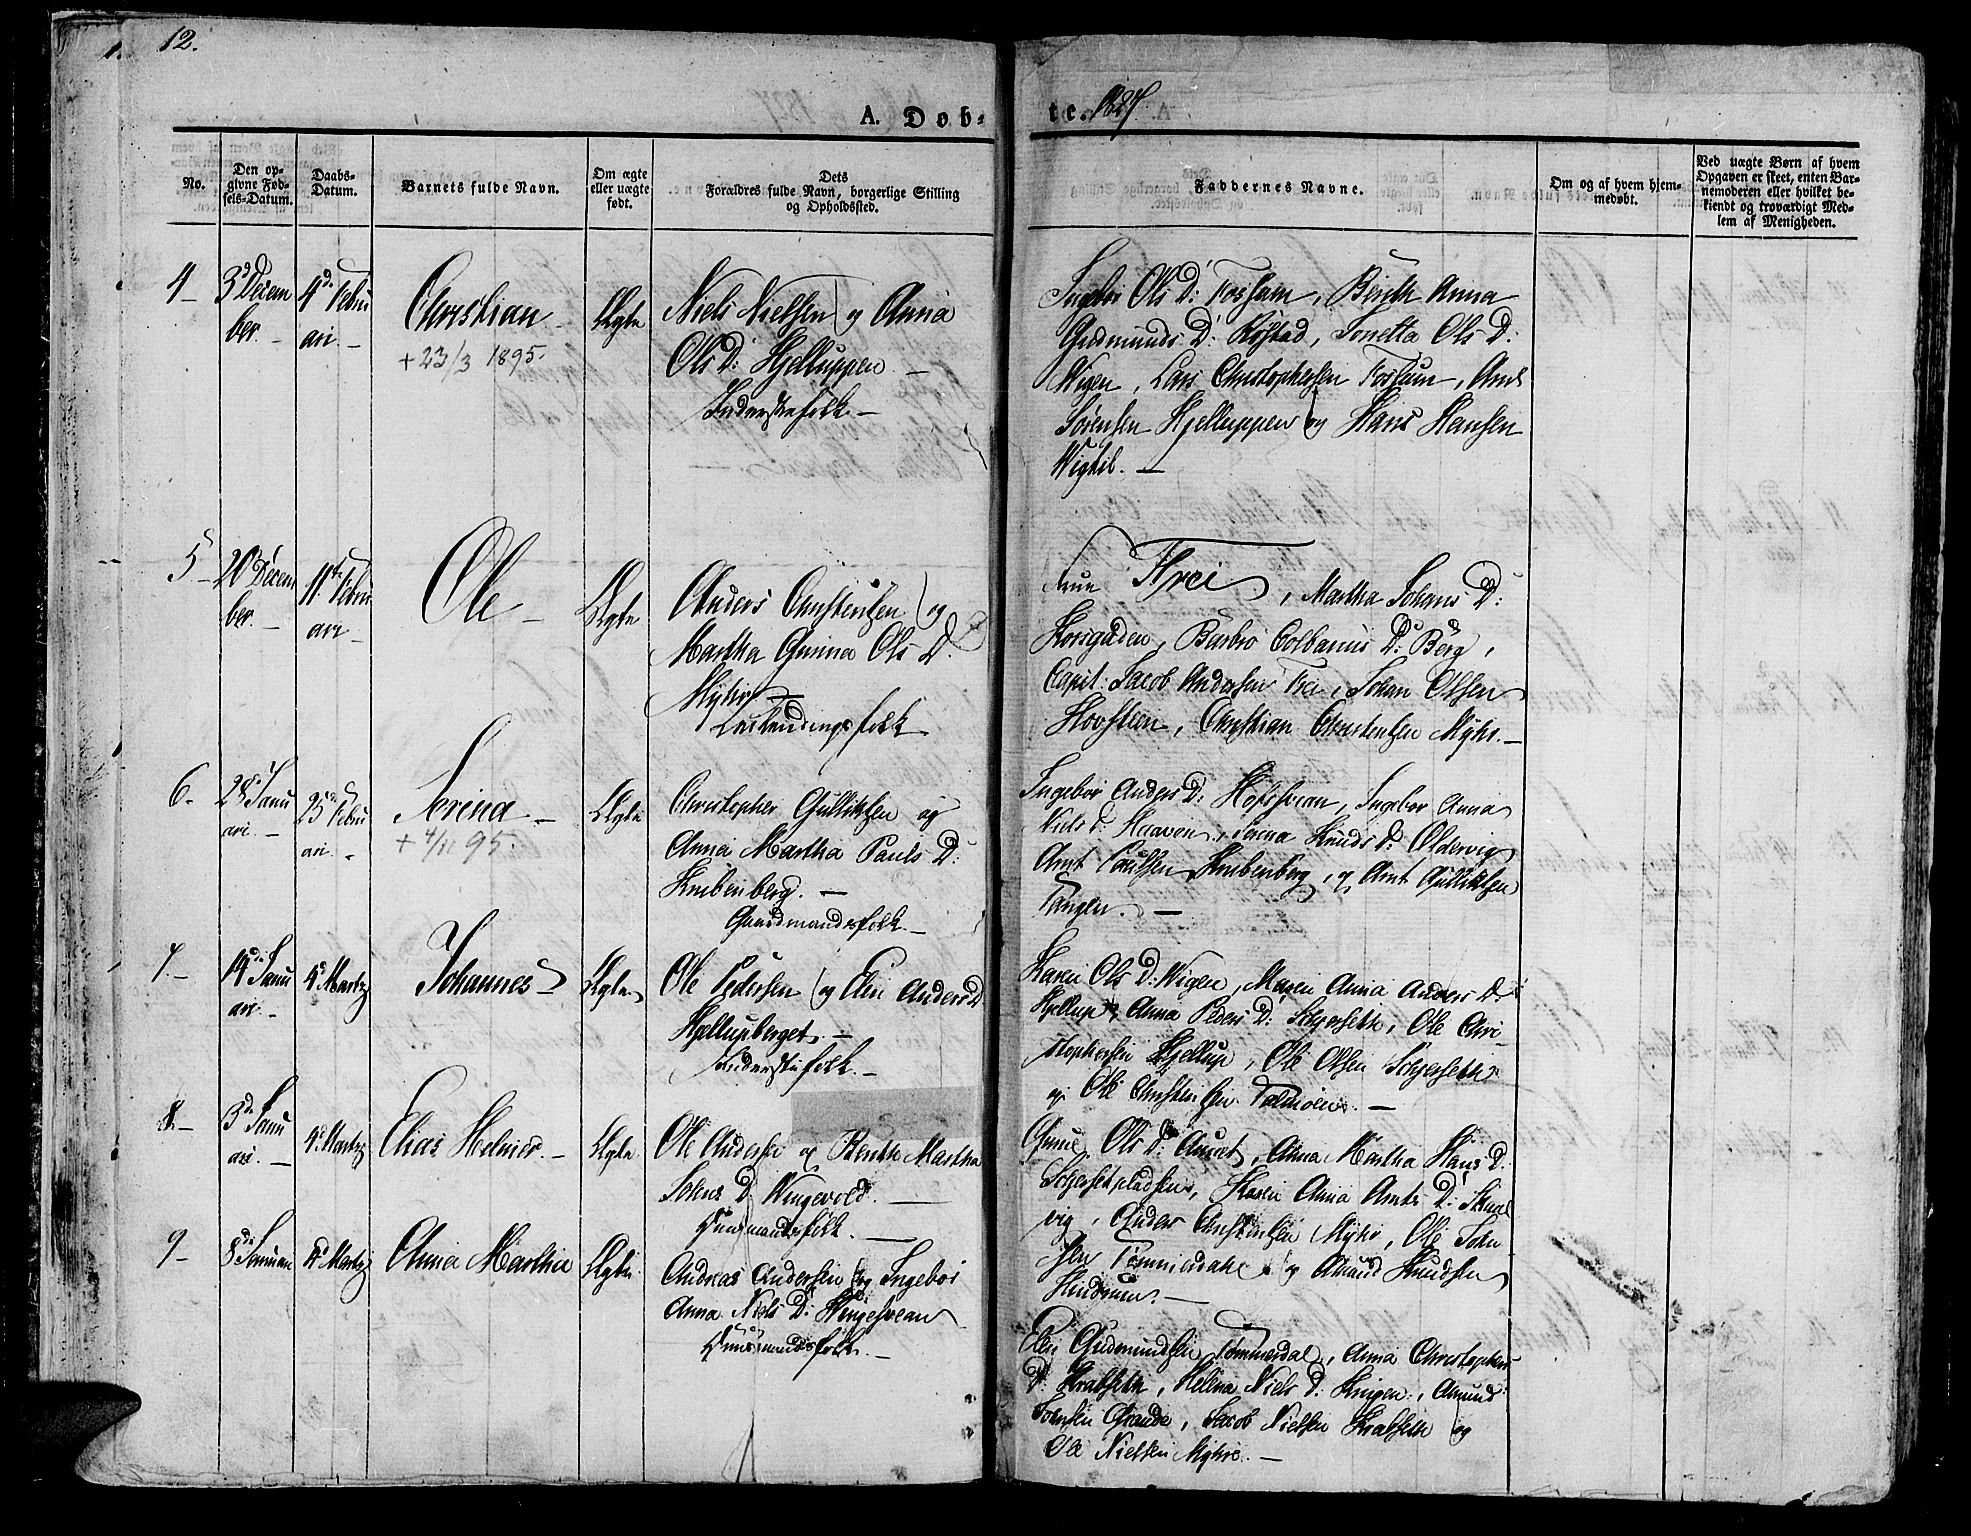 12.
A. Døb-
te. 1827.
No.
Den op-
givne Fød-
sels-Datum.
Daabs-
Datum.
Barnets fulde Navn.
Om ægte
eller uægte
født.
Dets
Forældres fulde Navn, borgerlige Stilling
og Opholdssted.
Faddernes Navne.
Om og af hvem hjem-
medøbt.
Ved uægte Børn af hvem
Opgaven er skeet, enten Bar-
nemoderen eller hvilket be-
kiendt og troværdigt Med-
lem af Menigheden.
4 -
3d Decem
ber. -
4d Febru
ari. -
Christian -
+ 23/3 1895.
Ægte
Niels Nielsen og Anna
Ols D: Hjelluppen -
Inderstefolk -
Ingebor Ols D: Fossum, Berith Anna
Gudmunds D: Røstad, Sonetta Ols D:
Wigen, Lars Christophersen Fossum, Arnt
Sørensen Hjelluppen og Hans Hansen
-
5 -
20 Decem
ber. -
11te Febru
ari -
Ole -
Ægte
Anders Christensen og
Martha Gunna Ols D.
Myhr
folk
Frue Frei, Martha Johans D:
Barbro Colbanus D: Berg,
Capit: Jacob Andersen Frei, Johan Olsen
Christian Christensen Myhr. -
6 -
28d Janu
ari. -
25de Febru
ari -
Serina -
+ 4/11 95.
Ægte
Christopher Gulliksen og
Anna Martha Pauls D:
Knubenberg. -
Gaardmandsfolk. -
Ingebor Anders D: Ingebor Anna
Niels D: Knuds D: Oldervig
Arnt Paulsen Knubenberg, og Arnt Gulliksen
Tangen. -
7. -
14d Janu
ari. -
4d Martz
Johannes
Ægte
Ole Pedersen og Elen Anders D
Hjellupberget. -
Inderstefolk. -
Karen Ols D: Wigen, Maren Anna Anders D:
Hjellup, Anna Peders D: Schjersetth, Ole Chri-
stophersen Hjellup, Ole Olsen Schjersetth
og Ole Christensen -
8. -
3d Janu
ari. -
4d Martz
Elias Helmer. -
Ægte
Ole Andersen og Berith Martha
Johns D: Wingevold. -
Huusmandsfolk. -
Ols D: Auset, Anna Martha Hans D.
Schjersetpladsen, Karen Anna Arnts D:
vig, Anders Christensen Myhr, Ole John
sen Tømmerdahl og Amund Knudsen
-
9 -
8de Januari
4d Martz
Anna Martha
Ægte
Andreas Andersen og Ingebor
Anna Niels D:
Huusmandsfolk. -
Elen Gudmundsen Tømmerdal, Anna Christophers
D: Krabseth, Helena Niels D: Amund
Johnsen Grande, Jacob Nielsen Krabseth og
Ole Nielsen Myhre. -